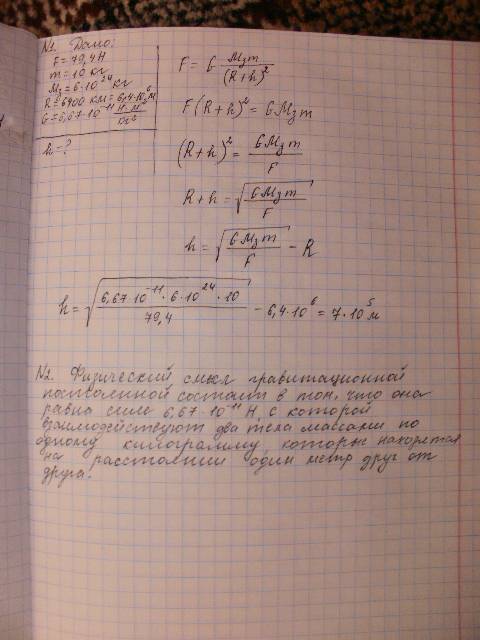 N1. Дано:
F = 79,4 Н
m = 10 кг
M₃ = 6·10²⁴ кг
R = 6400 км = 6,4·10⁶ м
G = 6,67·10⁻¹¹ Н·м²/кг²
h = ?
F = G M₃m/(R+h)²
F(R+h)² = GM₃m
(R+h)² = GM₃m/F
R+h = √(GM₃m/F)
h = √(GM₃m/F) - R
h = √(6,67·10⁻¹¹·6·10²⁴·10/79,4) - 6,4·10⁶ = 7·10⁵ м
N2. Физический смысл гравитационной
постоянной состоит в том, что она
равна силе 6,67·10⁻¹¹ Н, с которой
взаимодействуют два тела массами по
одному килограмму, которы находятся
на расстоянии один метр друг от
друга.